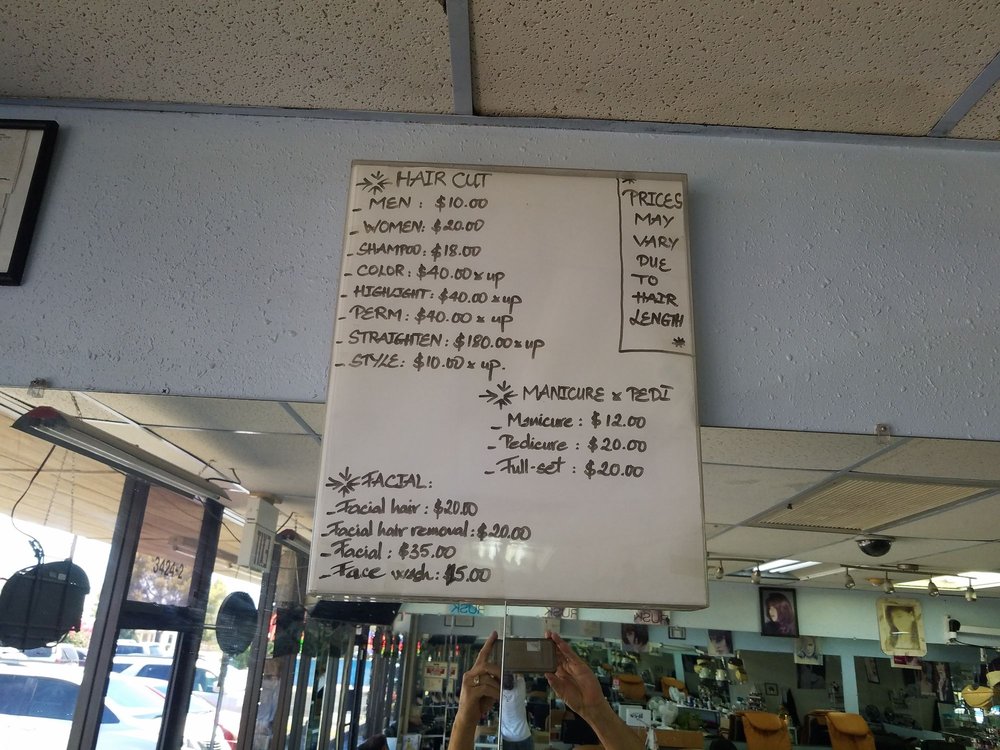 HAIR CUT
- MEN : $10.00
- WOMEN: $20.00
- SHAMPOO: $18.00
- COLOR: $40.00 & up
- HIGHLIGHT: $40.00 & up
- PERM: $40.00 & up
- STRAIGHTEN: $180.00 & up
- STYLE: $10.00 & up.
*
PRICES
MAY
VARY
DUE
TO
HAIR
LENGTH
*
MANICURE & PEDI
- Manicure : $12.00
- Pedicure : $20.00
- Full-set : $20.00
FACIAL:
- Facial hair : $20.00
- Facial hair removal : $20.00
- Facial : $35.00
- Face wash : $15.00
3424-2